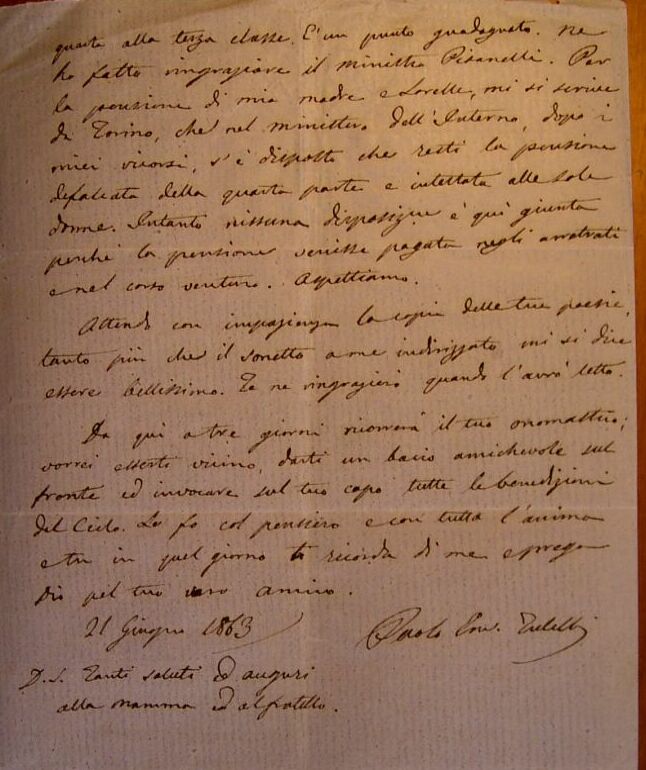 quarta alla terza classe. È un punto guadagnato. Ne
ho fatto ringraziare il ministro Pisanelli. Per
la pensione di mia madre e sorelle, mi si scrive
da Torino, che nel ministero dell'Interno, dopo i
miei ricorsi, s'è disposto che resti la pensione
defalcata della quarta parte e intestata alle sole
donne. Intanto nissuna disposizione è quì giunta
perchè la pensione venisse pagata negli arretrati
e nel corso venturo. Aspettiamo.
Attendo con impazienza la copia delle tue poesie,
tanto più che il sonetto a me indirizzato mi si dice
essere bellissimo. Te ne ringrazierò quando l'avrò letto.
Da qui a tre giorni ricorrerà il tuo onomastico;
vorrei esserti vicino, darti un bacio amichevole sul
fronte ed invocare sul tuo capo tutte le benedizioni
del Cielo. Lo fo col pensiero e con tutta l'anima
e tu in quel giorno ti ricorda di me e prega
Dio pel tuo vero amico.
21 Giugno 1863
Paolo Em. Tulelli
P.S. Tanti saluti ed auguri
alla mamma ed al fratello.